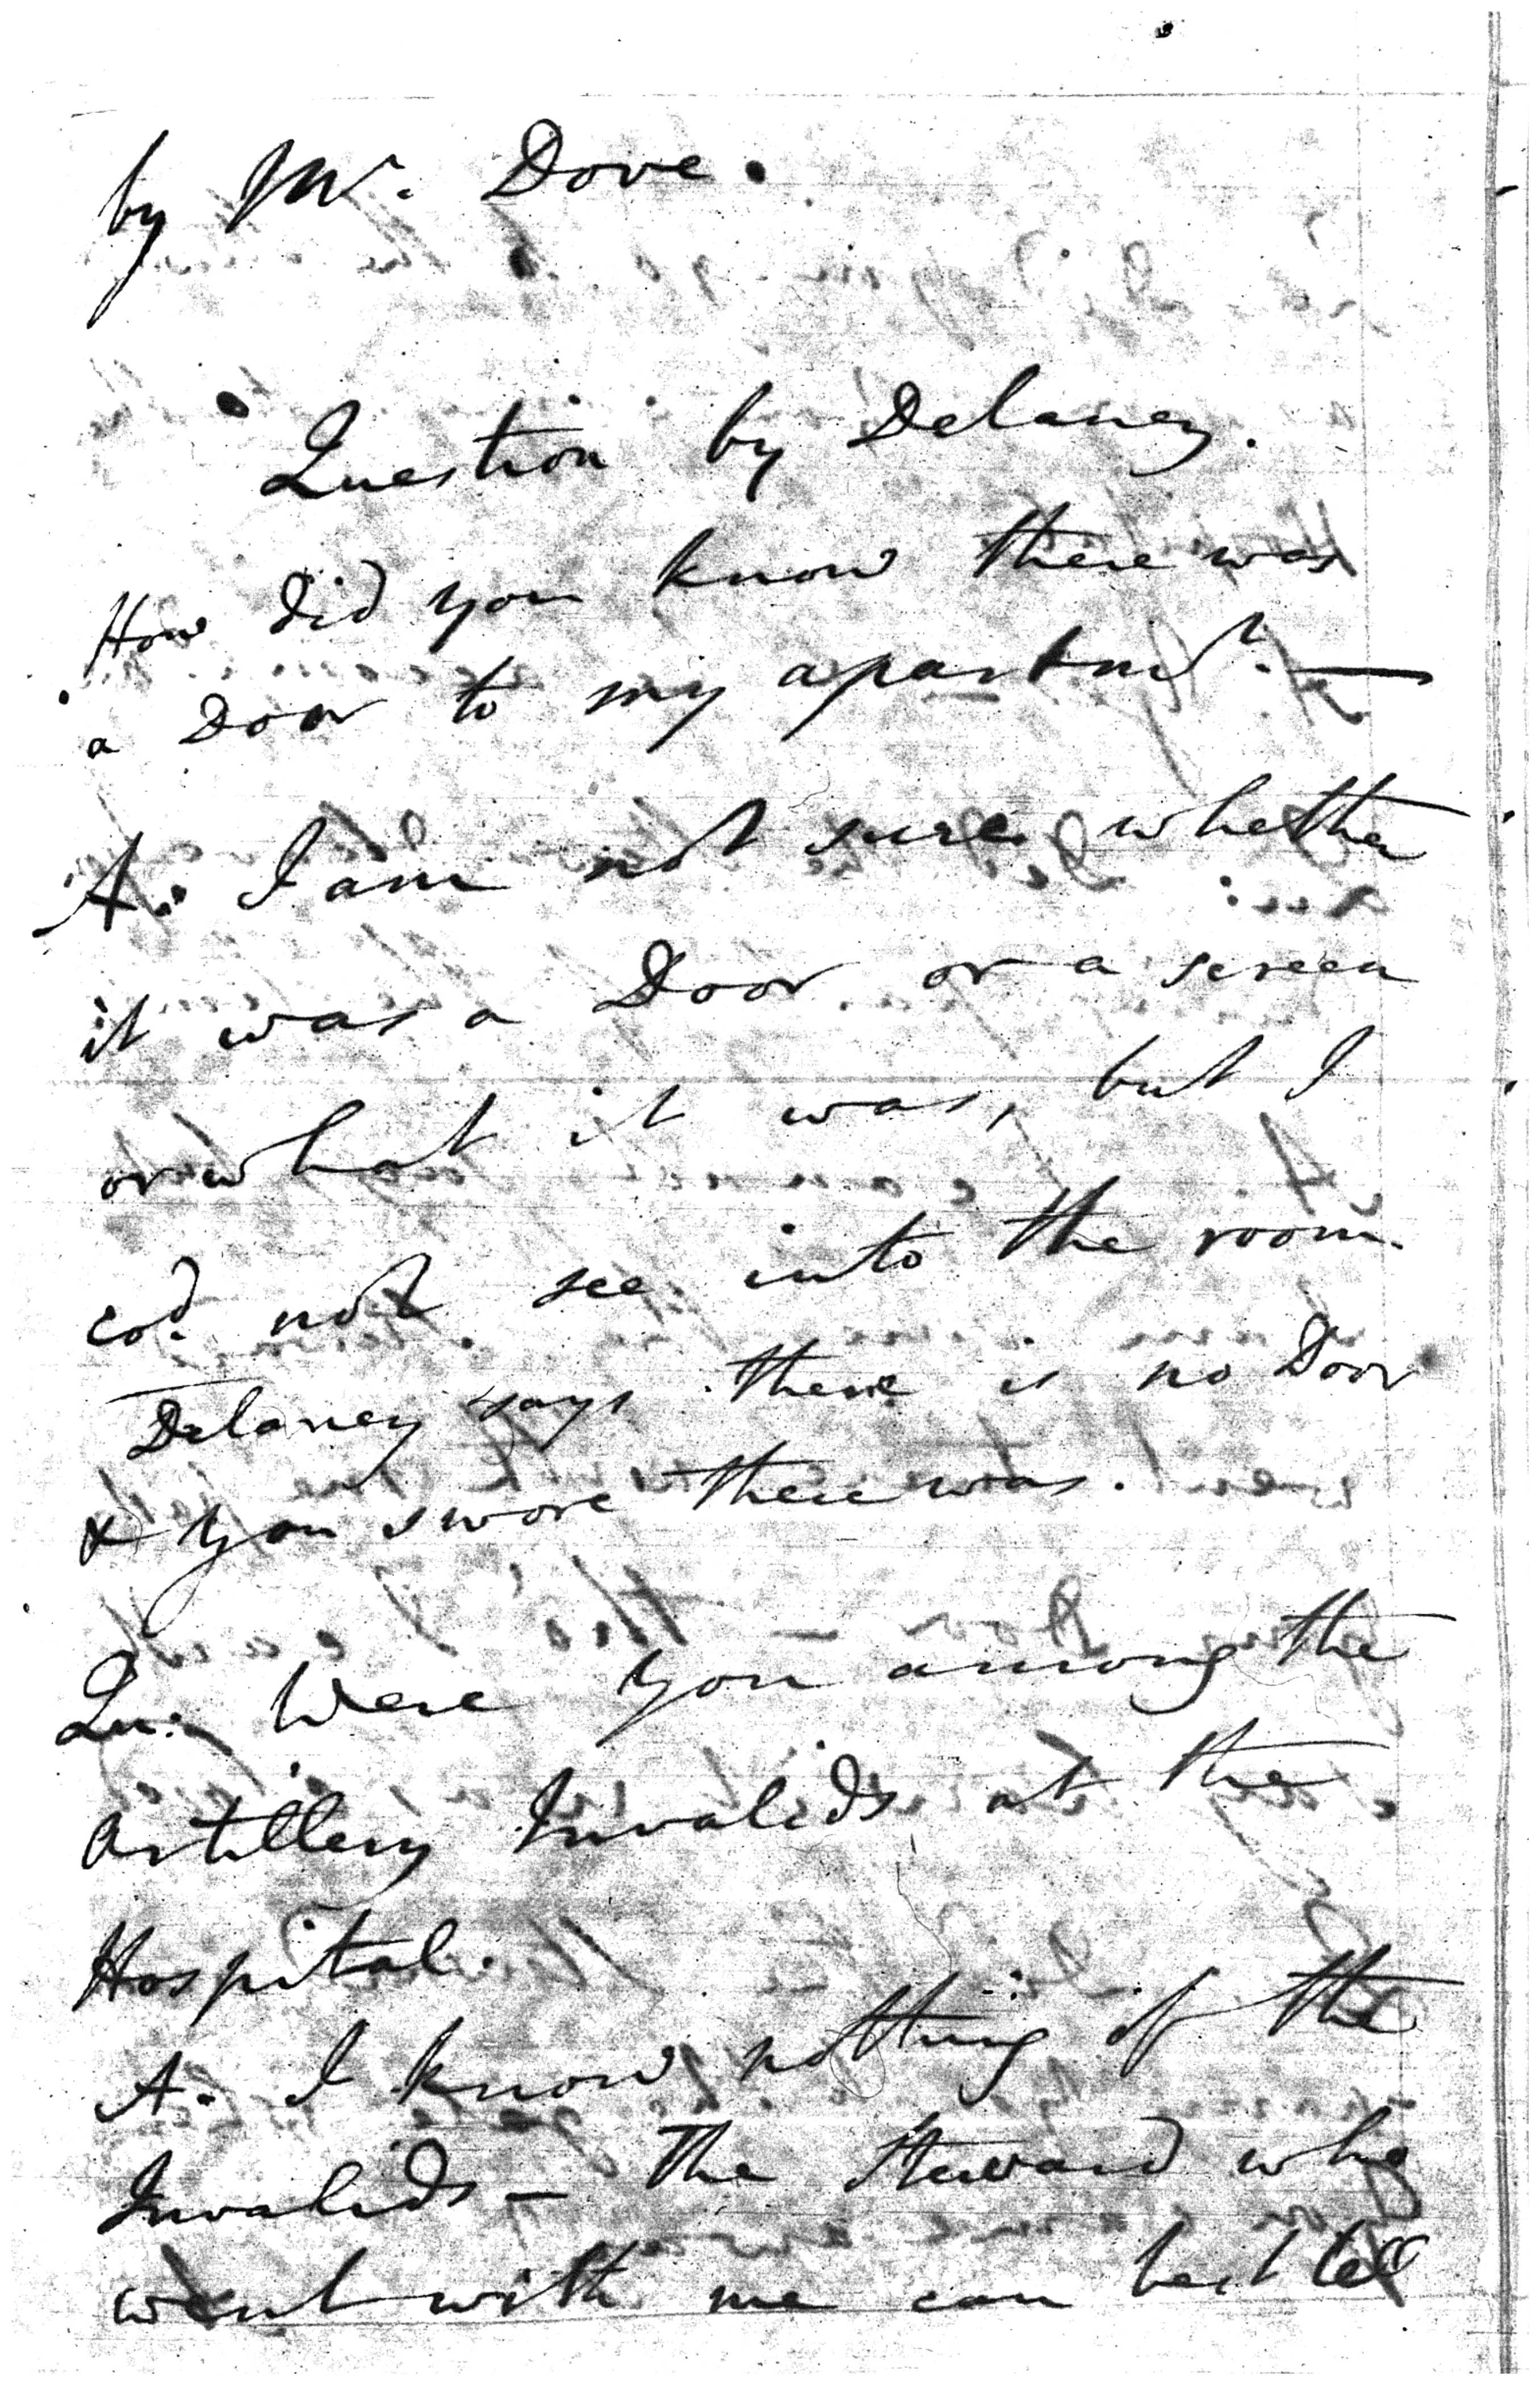 by Mr. Dove.
Question by Delaney.
How did you know there was
a Door to my apartmt. —
A. I am not sure whether
it was a Door or a screen
or what it was, but I
cod. not see into the room.
Delaney says there is no Door
& you swore there was.
Qu: Were you among the
Artillery Invalids at the
Hospital.
A. I know nothing of the
Invalids — The Steward who
went with me can best tell